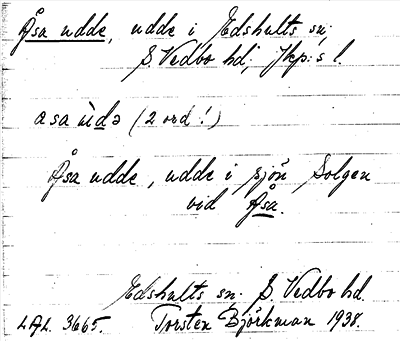 Åsa udde, udde i Edshults sn;
S. Vedbo hd; Jkp:s l.
asa ùdə (2 ord!)
Åsa udde, udde i sjön Solgen
vid Åsa.
Edshults sn. S. Vedbo hd.
LAL. 3665. Torsten Björkman 1938.